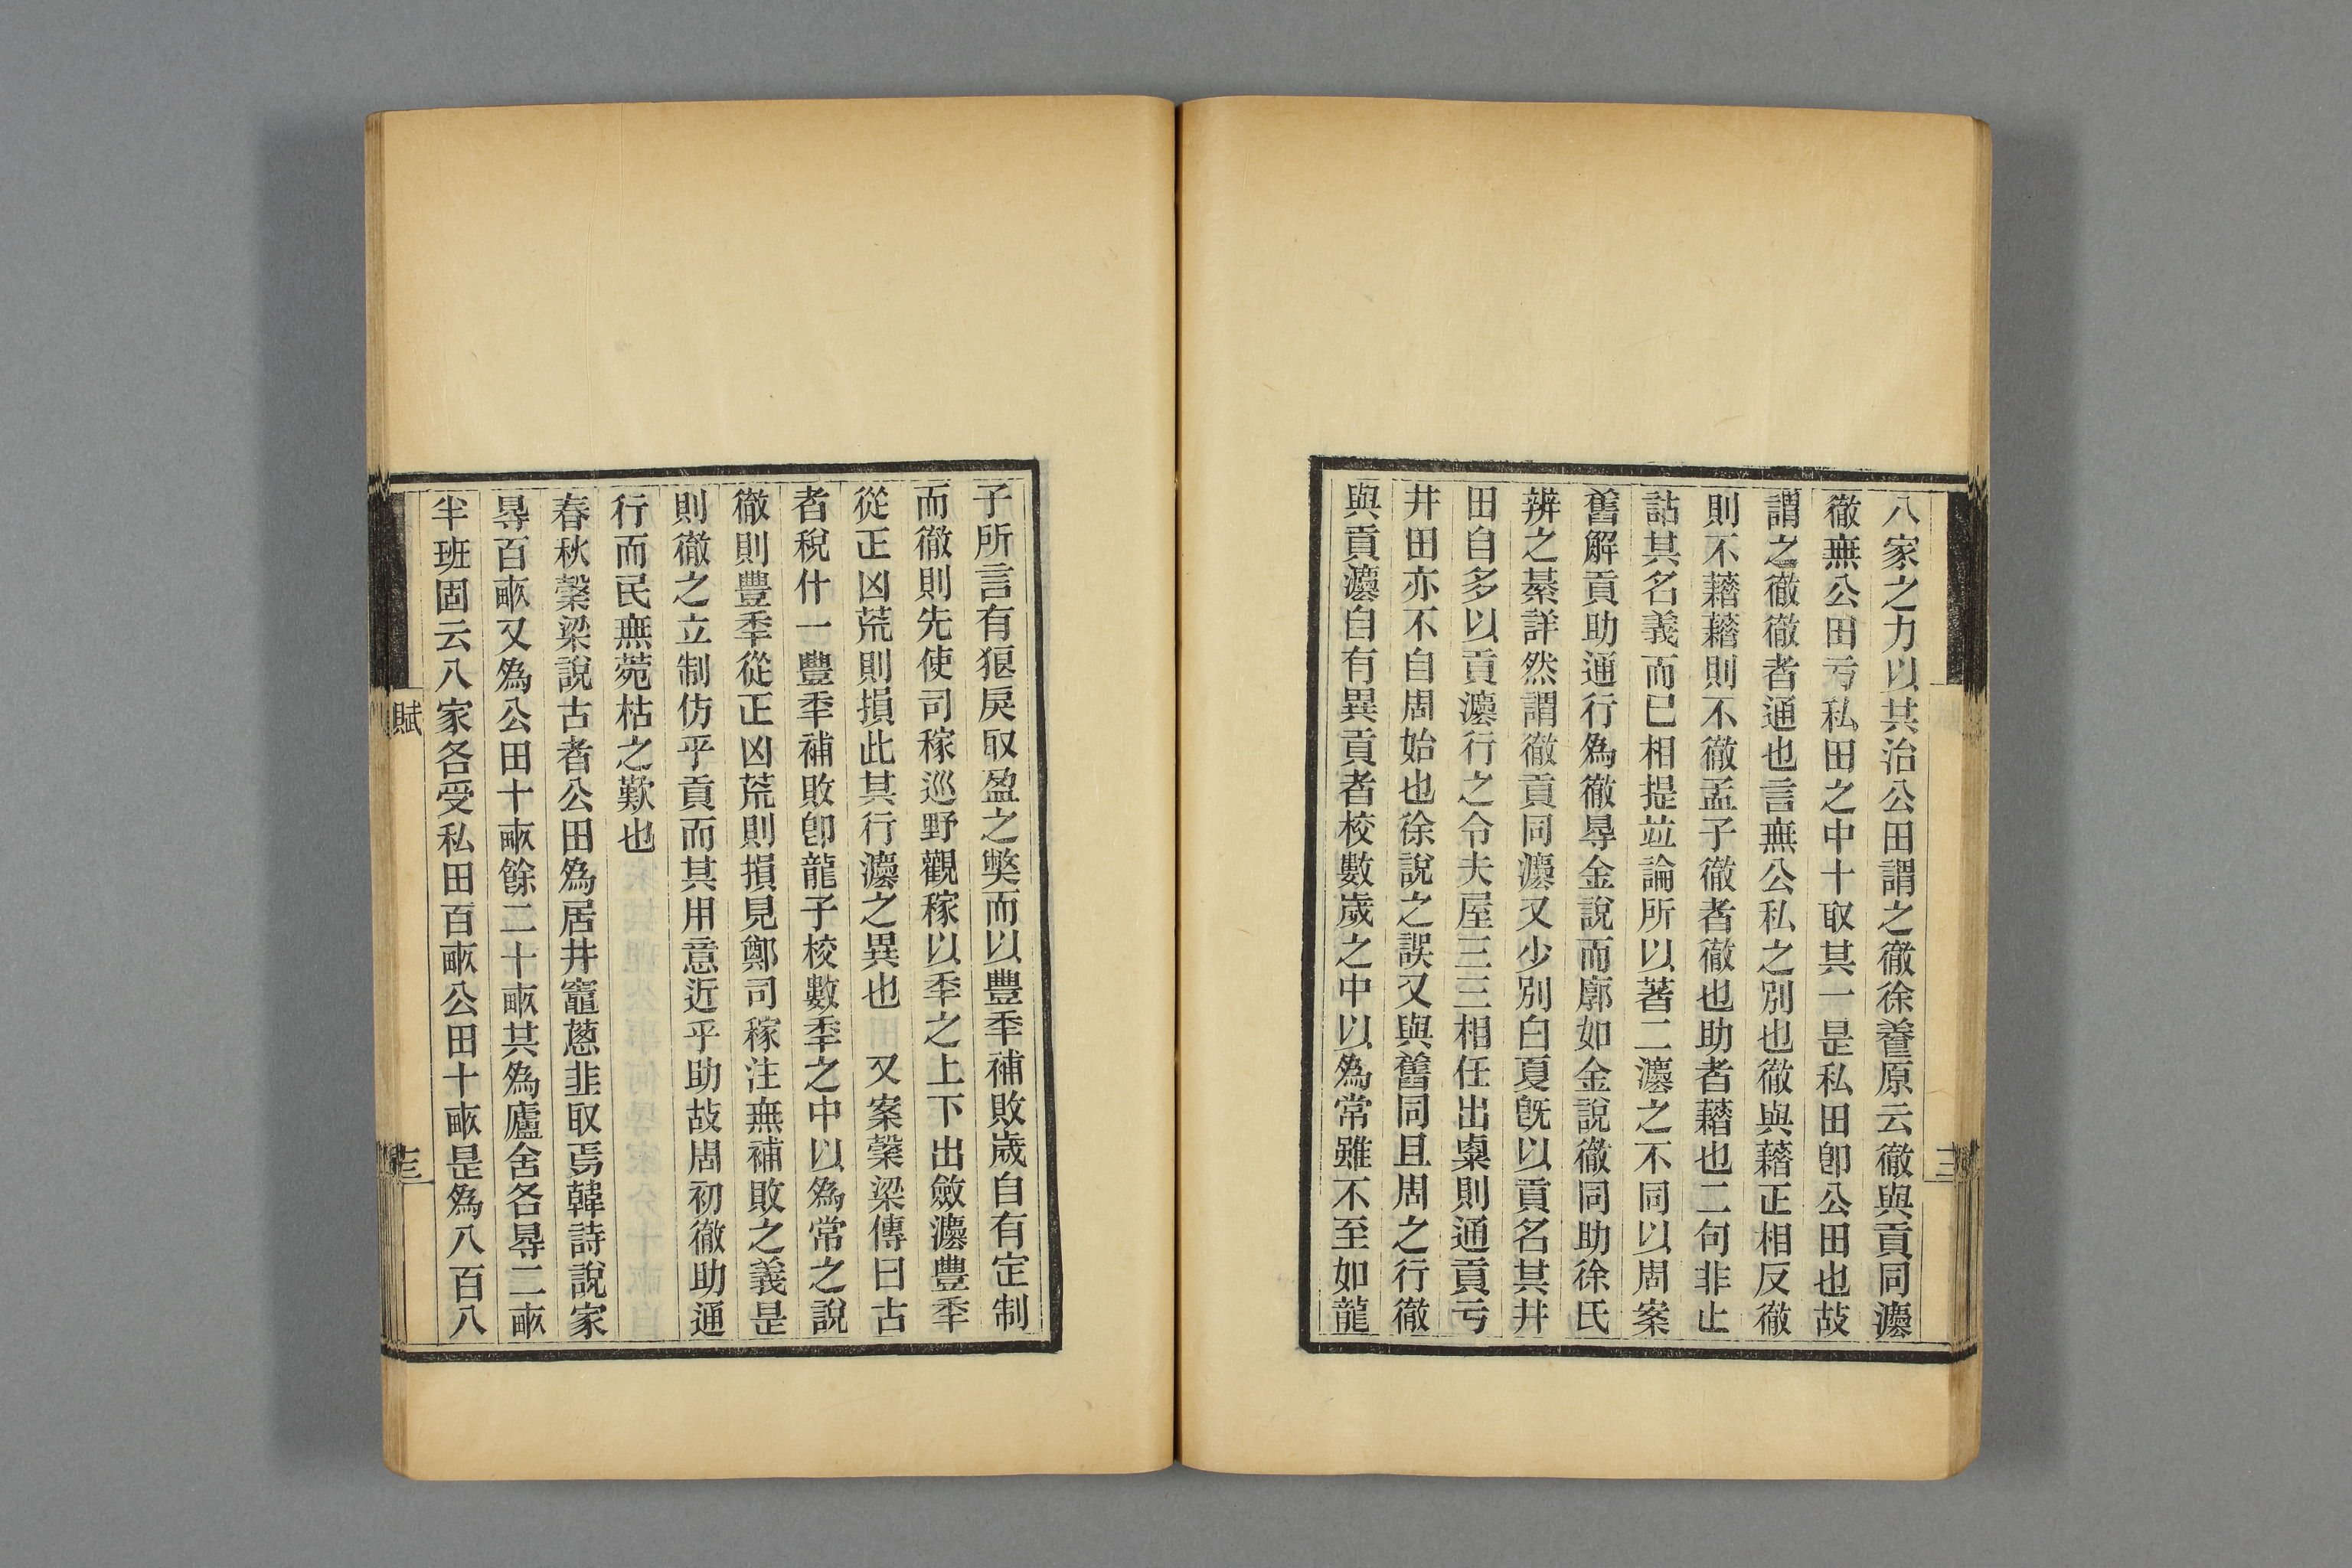 八家之力以其治公田謂之徹徐養原云徹與貢同灋
徹無公田亏私田之中十取其一是私田卽公田也故
謂之徹徹者通也言無公私之別也徹與藉正相反徹
則不藉藉則不徹孟子徹者徹也助者藉也二句非止
詁其名義而已相提竝論所以著二灋之不同以周案
舊解貢助通行爲徹㝵金說而廓如金說徹同助徐氏
辨之綦詳然謂徹貢同灋又少別白夏旣以貢名其井
田自多以貢灋行之令夫屋三三相任出㮚則通貢亏
井田亦不自周始也徐說之誤又與舊同且周之行徹
與貢灋自有異貢者校數歲之中以爲常雖不至如龍
子所言有狠戾取盈之獘而以豐秊補敗歲自有定制
而徹則先使司稼巡野觀稼以秊之上下出斂灋豐秊
從正凶荒則損此其行灋之異也　又案穀梁傳曰古
者稅什一豐秊補敗卽龍子校數秊之中以爲常之說
徹則豐秊從正凶荒則損見鄭司稼注無補敗之義是
則徹之立制仿乎貢而其用意近乎助故周初徹助通
行而民無菀枯之歎也
春秋穀梁說古者公田爲居井竈蔥韭取焉韓詩說家
㝵百畮又爲公田十畮餘二十畮其爲廬舍各㝵二畮
半班固云八家各受私田百畮公田十畮是爲八百八
賦
三